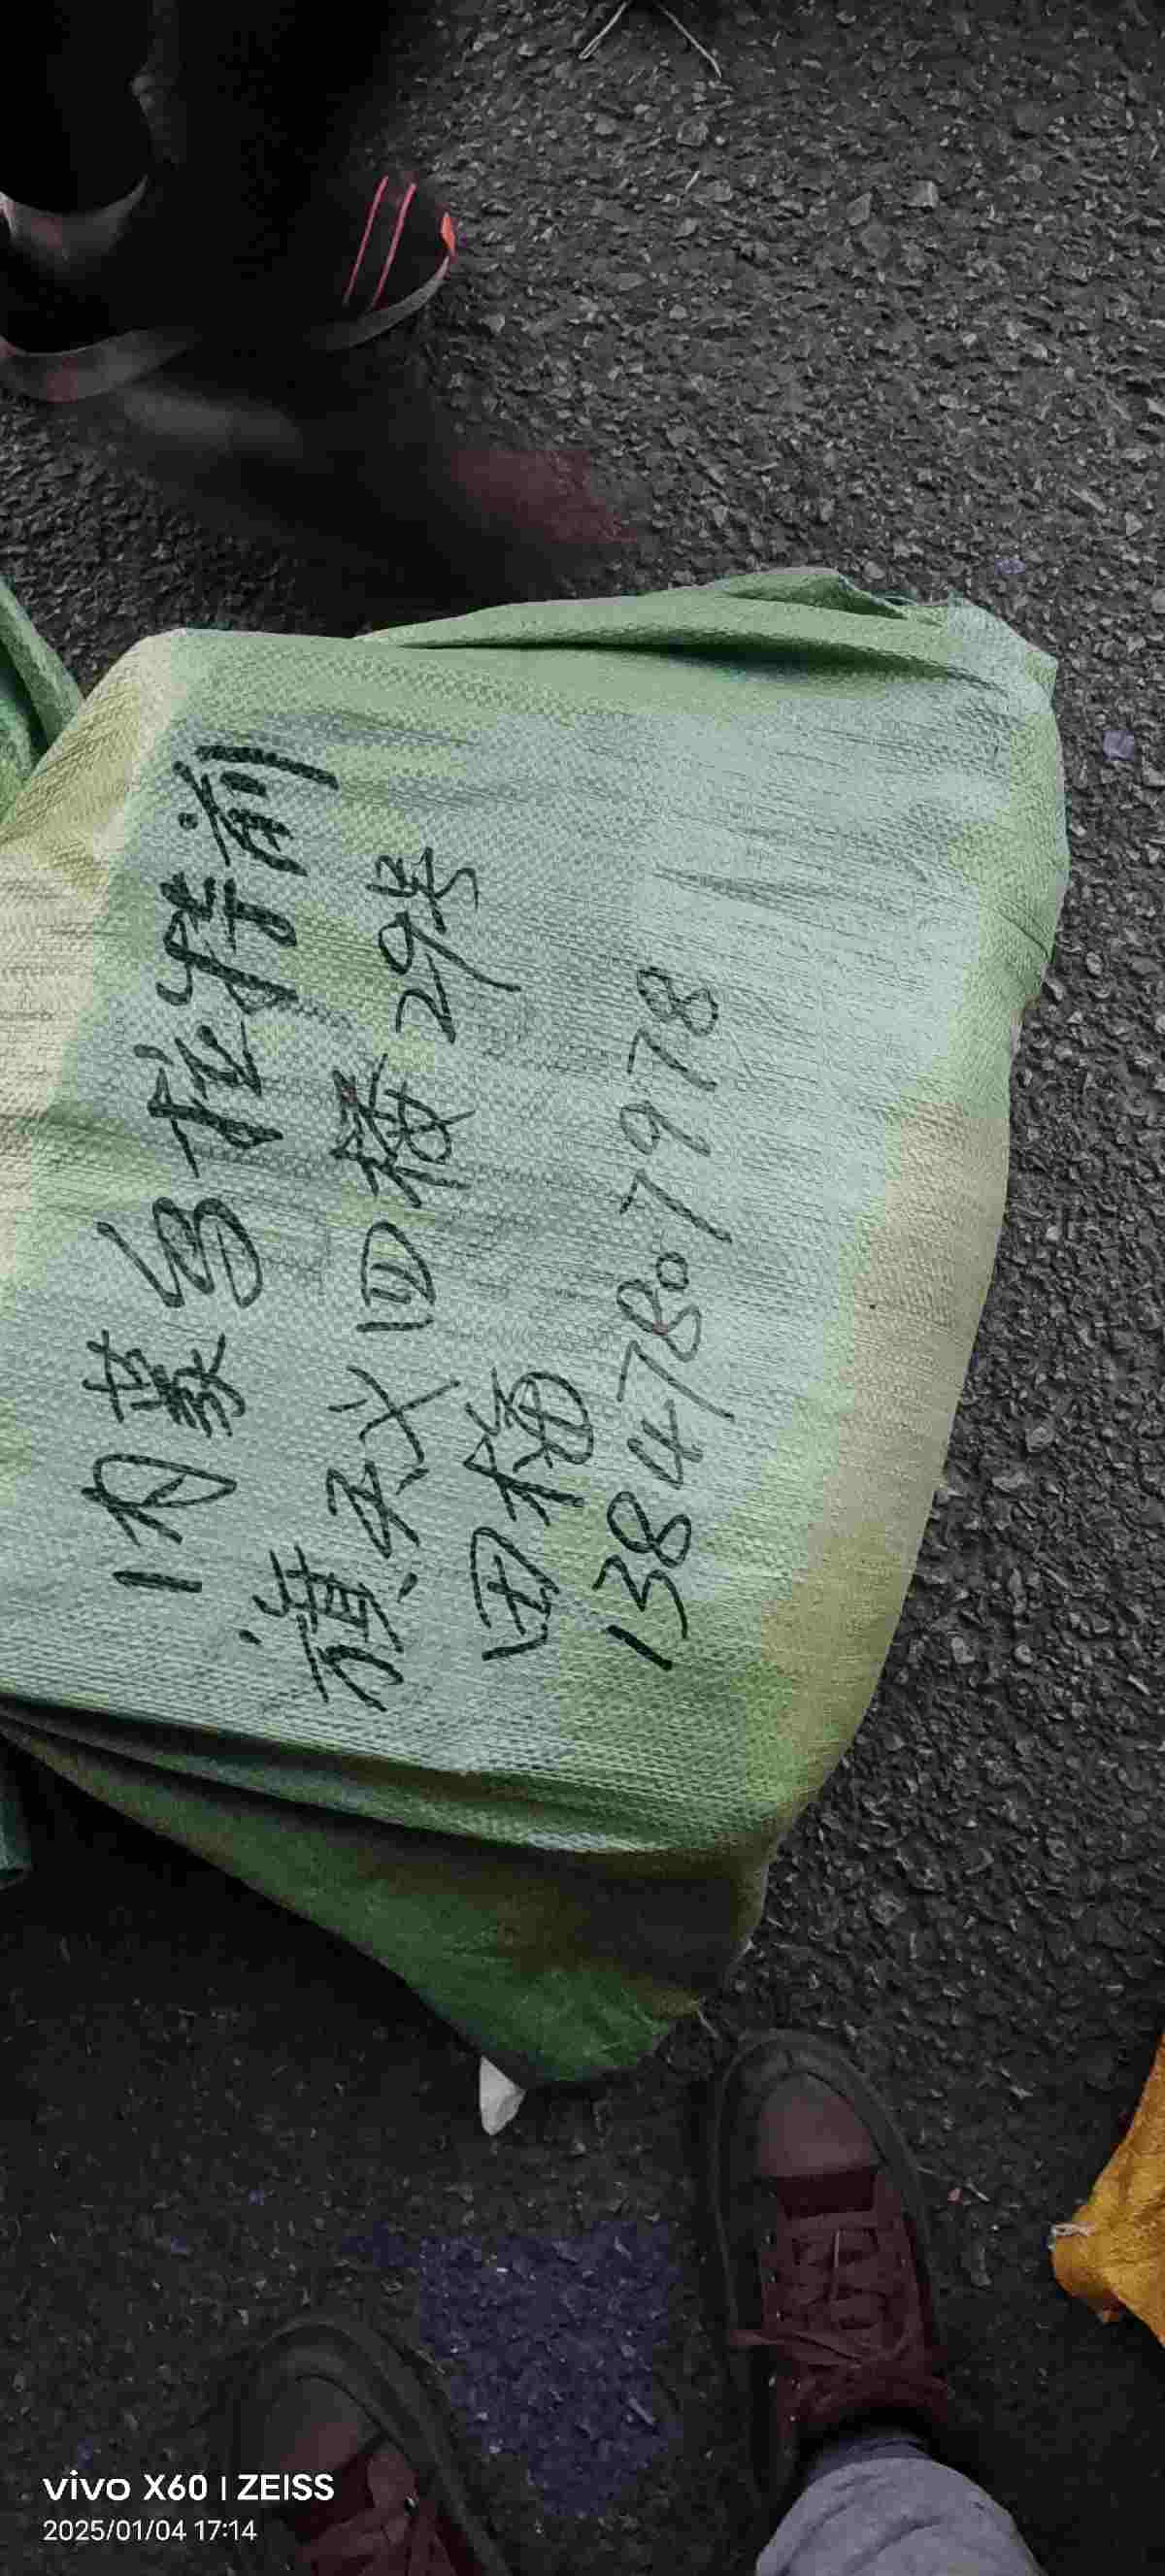 内蒙乌拉特前
旗 四楼 29号
13847807978
vivo X60 | ZEISS
2025/01/04 17:14